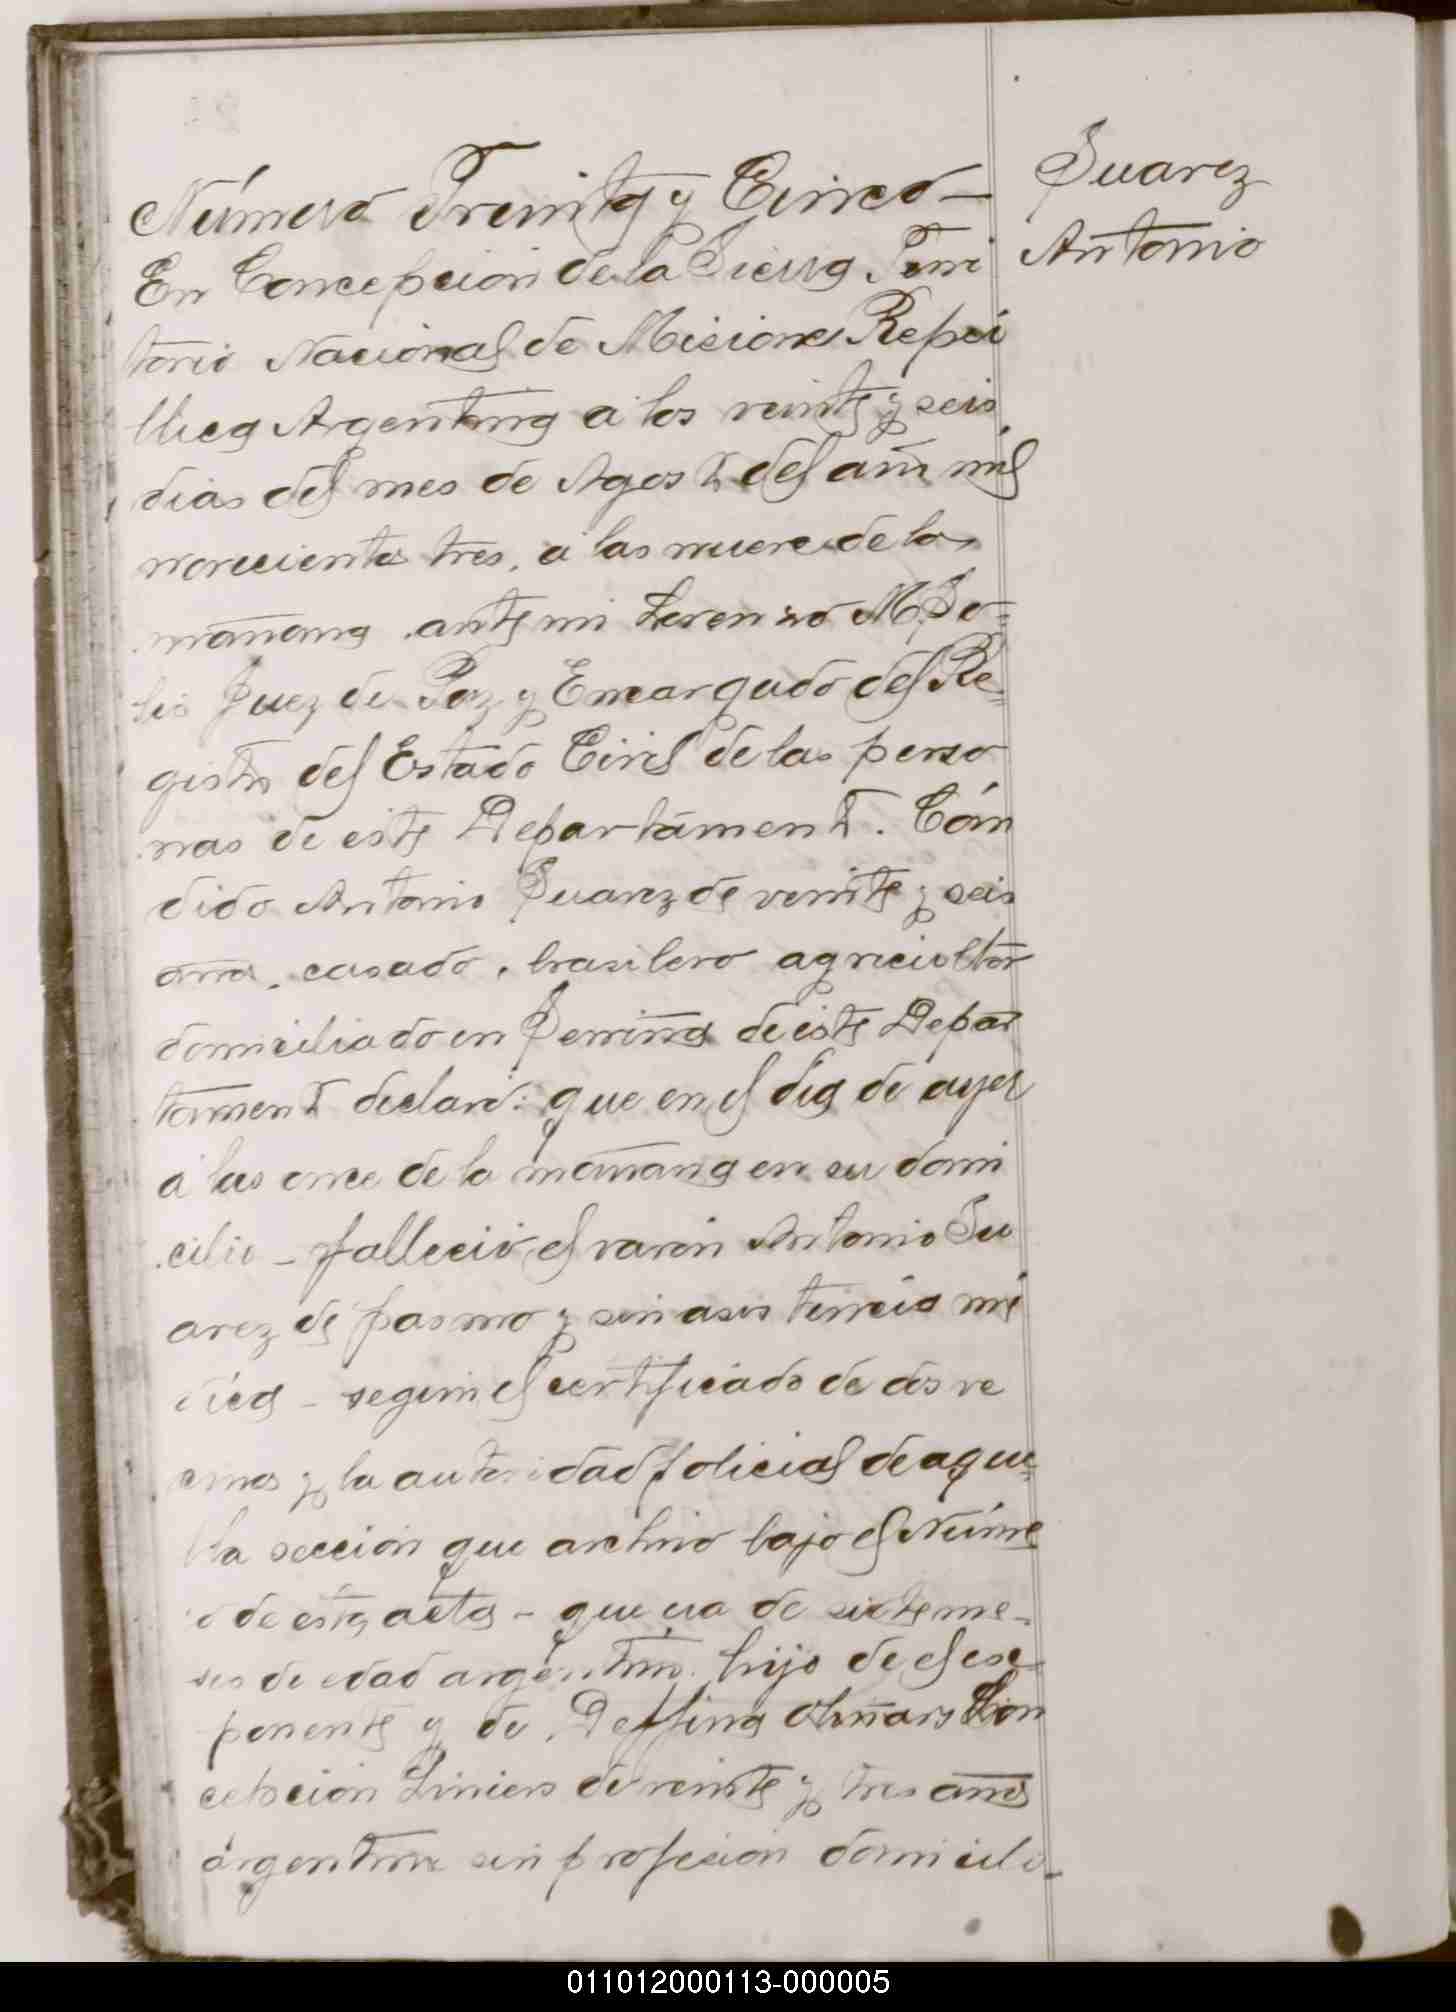 Suarez
Antonio
Número Treinta y Cinco—
En Concepcion de la Sierra Terri
torio Nacional de Misiones Repú
blica Argentina a los veinte y seis
dias del mes de Agosto del año mil
novecientos tres, a las nueve de la
mañana ante mi Lorenzo M. So=
lis Juez de Paz y Encargado del Re=
gistro del Estado Civil de las perso
nas de este Departamento. Cán
dido Antonio Suarez de veinte y seis
años, casado, brasilero agricultor
domiciliado en de este Depar
tamento declaró: que en el dia de ayer
a las once de la mañana en su domi
cilio – falleció el varón Antonio Su
arez de pasmo y sin asistencia mé
dica – segun el certificado de dos ve
cinos y la autoridad policial de aque=
lla sección que archivo bajo el Núme
ro de esta acta – que era de siete me-
ses de edad argentino. hijo de el ex
ponente y de Con
cepcion Liniers de veinte y tres años
argentina sin profesion domicili-
011012000113-000005